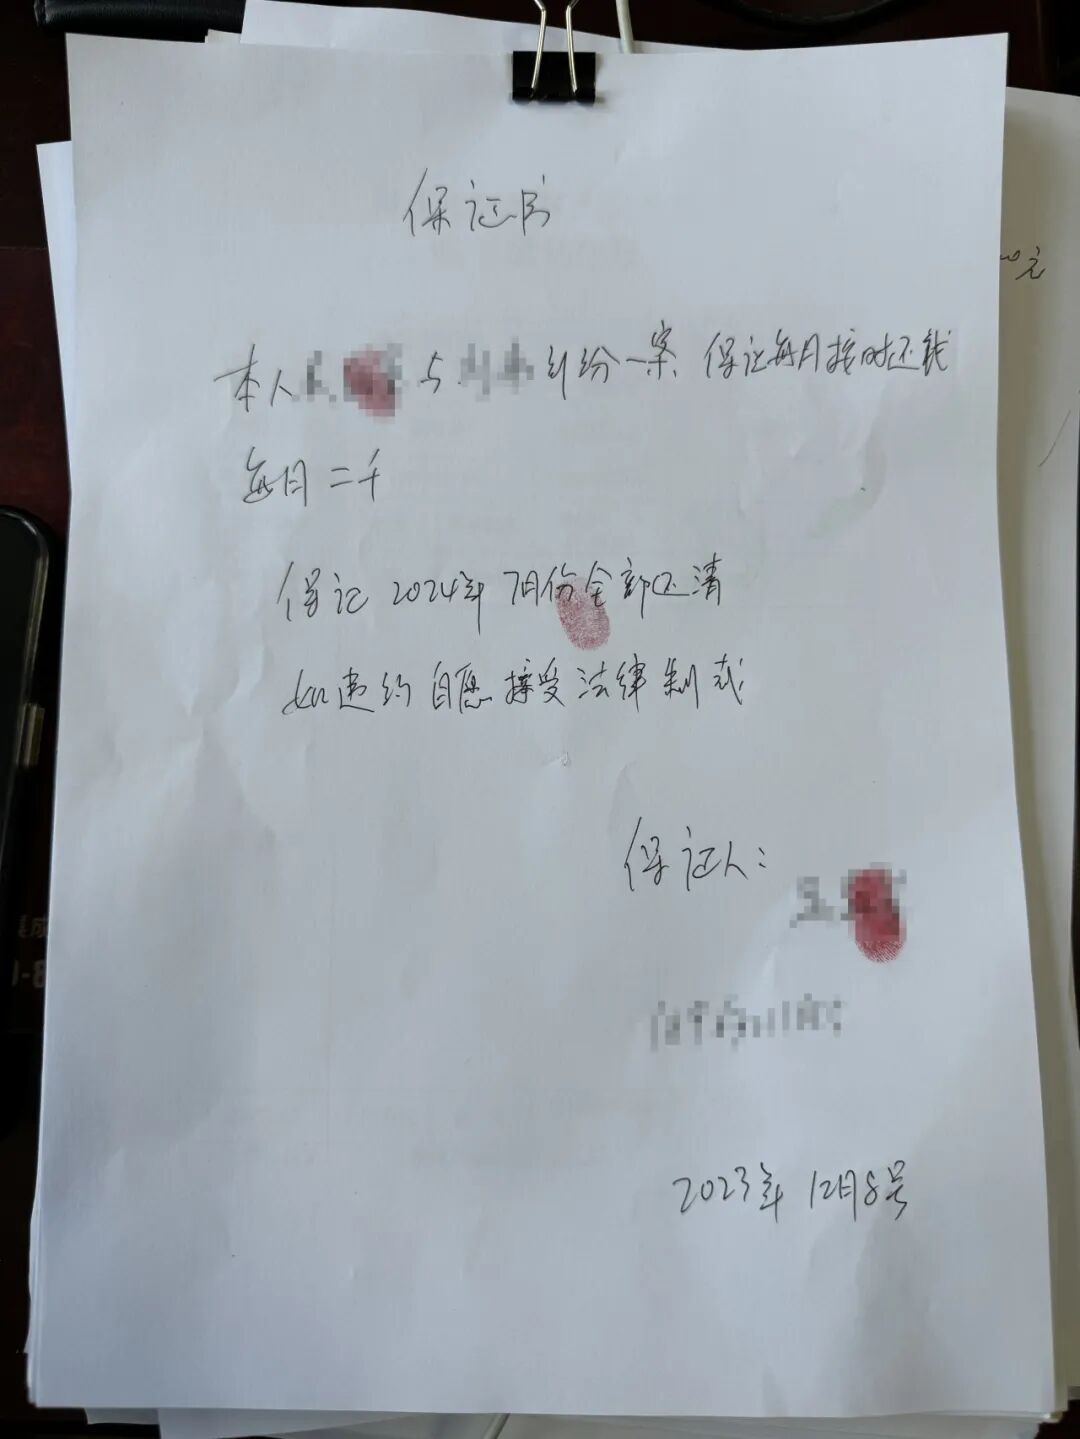 保证书
本人 与 纠纷一案 保证每月按时还钱
每月二千
保证 2024年 7月份全部还清
如违约自愿接受法律制裁
保证人：
2023年 12月8号
元
集成